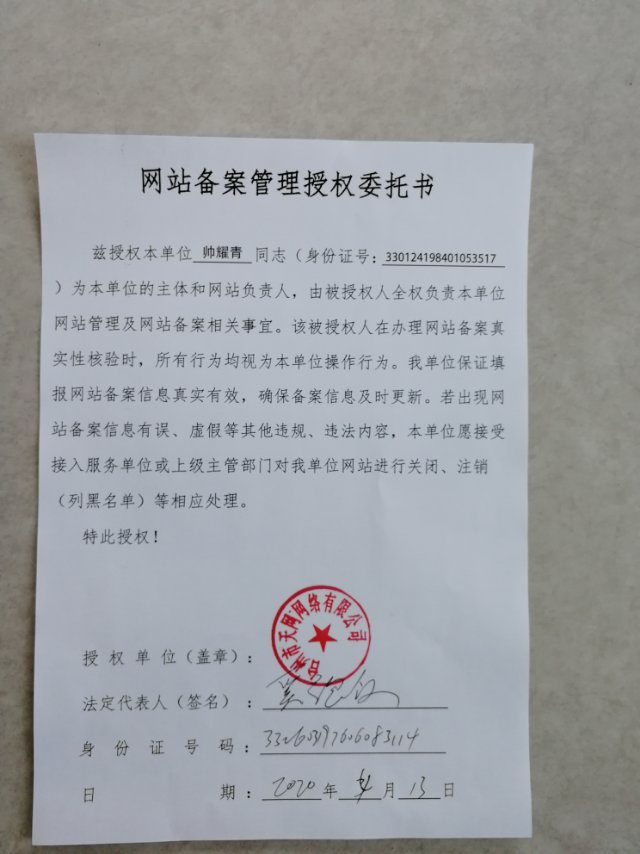 网站备案管理授权委托书
兹授权本单位 帅耀青 同志（身份证号：330124198401053517
）为本单位的主体和网站负责人，由被授权人全权负责本单位
网站管理及网站备案相关事宜。该被授权人在办理网站备案真
实性核验时，所有行为均视为本单位操作行为。我单位保证填
报网站备案信息真实有效，确保备案信息及时更新。若出现网
站备案信息有误、虚假等其他违规、违法内容，本单位愿接受
接入服务单位或上级主管部门对我单位网站进行关闭、注销
（列黑名单）等相应处理。
特此授权！
台州市天网网络有限公司
授权单位（盖章）：
法定代表人（签名）：
身份证号码：332603197606083114
日期：2020年4月13日